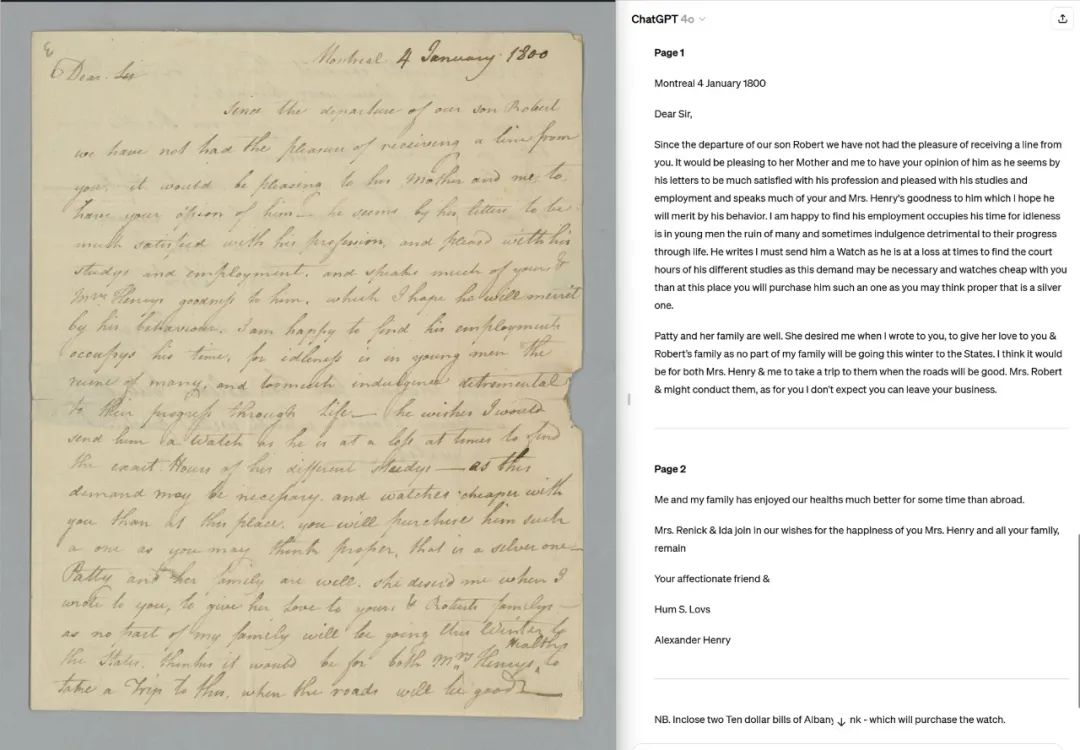 Montreal 4 January 1800
Dear Sir
Since the departure of our son Robert
we have not had the pleasure of receiving a line from
you. it would be pleasing to his Mother and me to
have your opion of him — he seems by his letters to be
much satisfied with his profession, and pleased with his
studys and employment. and speaks much of yours &
Mrs Henrys goodness to him, which I hope he will merret
by his behaviour. I am happy to find his employments
occupys his time, for idleness is in young men the
ruine of many, and too much indulgence detremental
to their progress through life — he wishes I would
send him a Watch as he is at a loss at times to find
the exact Hours of his different studys — as this
demand may be necessary. and watches cheaper with
you than at this place. you will purchase him such
a one as you may think proper, that is a silver one —
Patty and her family are well. she desired me when I
wrote to you, to give her love to yours & Roberts familys —
as no part of my family will be going this Winter to
the States. thinks it would be for both Mrs Henrys Healths to
take a Trip to this. when the roads will be good
ChatGPT 4o
Page 1
Montreal 4 January 1800
Dear Sir,
Since the departure of our son Robert we have not had the pleasure of receiving a line from
you. It would be pleasing to her Mother and me to have your opinion of him as he seems by
his letters to be much satisfied with his profession and pleased with his studies and
employment and speaks much of your and Mrs. Henry's goodness to him which I hope he
will merit by his behavior. I am happy to find his employment occupies his time for idleness
is in young men the ruin of many and sometimes indulgence detrimental to their progress
through life. He writes I must send him a Watch as he is at a loss at times to find the court
hours of his different studies as this demand may be necessary and watches cheap with you
than at this place you will purchase him such an one as you may think proper that is a silver
one.
Patty and her family are well. She desired me when I wrote to you, to give her love to you &
Robert's family as no part of my family will be going this winter to the States. I think it would
be for both Mrs. Henry & me to take a trip to them when the roads will be good. Mrs. Robert
& might conduct them, as for you I don't expect you can leave your business.
Page 2
Me and my family has enjoyed our healths much better for some time than abroad.
Mrs. Renick & Ida join in our wishes for the happiness of you Mrs. Henry and all your family,
remain
Your affectionate friend &
Hum S. Lovs
Alexander Henry
NB. Inclose two Ten dollar bills of Albany nk - which will purchase the watch.